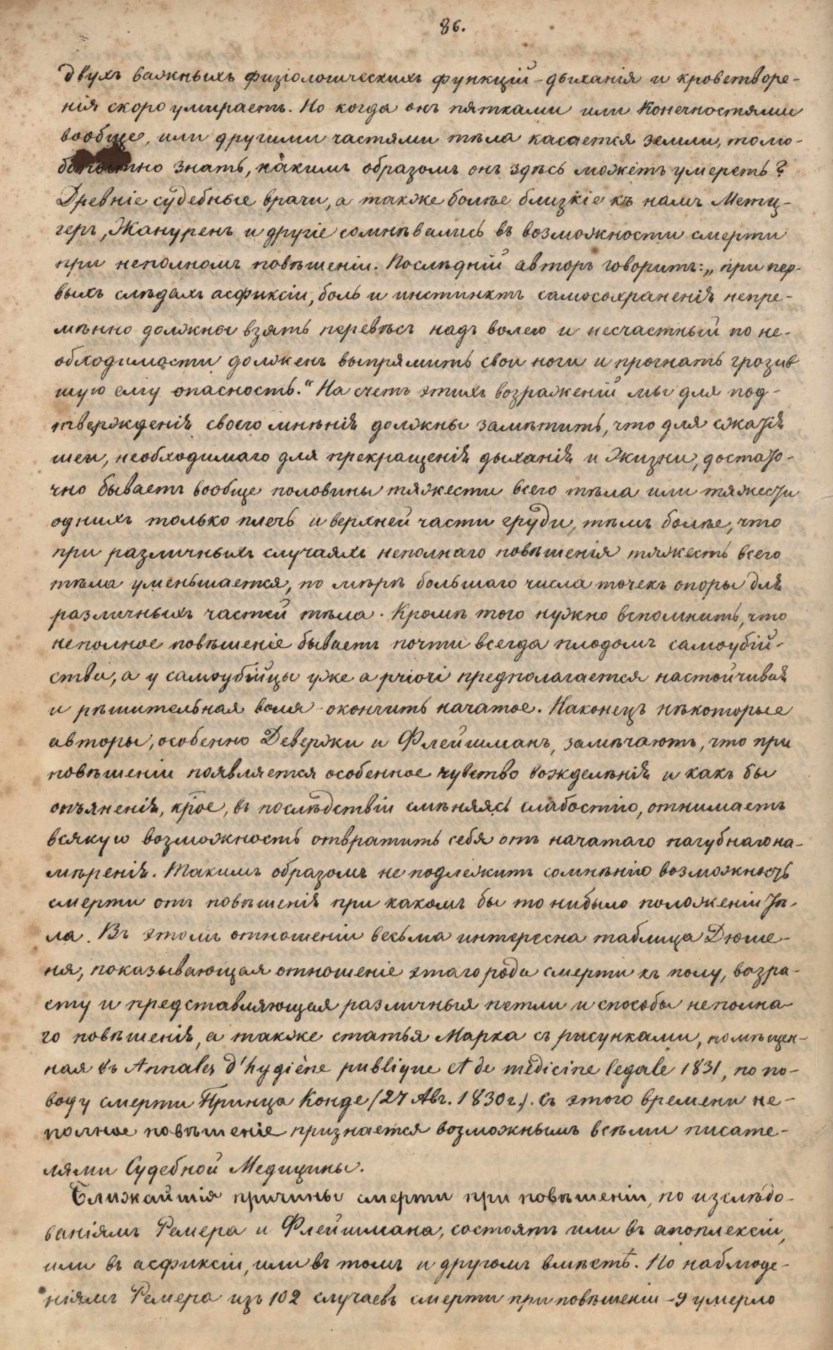 86.
двухъ важныхъ физіологическихъ функцій - дыханія и кроветворе-
нія скоро умираетъ. Но когда онъ пятками или конечностями
вообще, или другими частями тѣла касается земли, то лю-
бопытно знать, какимъ образомъ онъ здѣсь можетъ умереть?
Древніе судебные врачи, а также болѣе близкіе къ намъ Метц-
геръ, Жануренъ и другіе сомнѣвались въ возможности смерти
при неполномъ повѣшеніи. Послѣдній авторъ говоритъ: „при пер-
выхъ слѣдахъ асфиксіи, боль и инстинктъ самосохраненія непре-
мѣнно должны взять перевѣсъ надъ волею и несчастный по не-
обходимости должен выпрямить свои ноги и прогнать грозив
шую ему опасность.“ На счетъ этихъ возраженій мы для под-
твержденія своего мнѣнія должны замѣтить, что для сжатія
шеи, необходимаго для прекращенія дыханія и жизни, достато-
чно бываетъ вообще половины тяжести всего тѣла или тяжести
однихъ только плечъ и верхней части груди, тѣмъ болѣе, что
при различныхъ случаяхъ неполнаго повѣшенія тяжесть всего
тѣла уменьшается, по мѣрѣ большаго числа точекъ опоры для
различныхъ частей тѣла. Кромѣ того нужно вспомнить, что
неполное повѣшеніе бываетъ почти всегда плодомъ самоубій-
ства, а у самоубійцы уже a priori предполагается настойчивая
и рѣшительная воля - окончить начатое. Наконецъ нѣкоторые
авторы, особенно Девержи и Флейшманъ, замѣчаютъ, что при
повѣшеніи появляется особенное чувство вожделѣнія и какъ бы
опъяненія, крое, въ послѣдствіи смѣняясь слабостію, отнимаетъ
всякую возможность отвратить себя отъ начатаго пагубнаго на-
мѣренія. Такимъ образомъ не подлежитъ сомнѣнію возможность
смерти отъ повѣшенія при какомъ бы то нибыло положеніи тѣ-
ла. Въ этомъ отношеніи весьма интересна таблица Дюше-
ня, показывающая отношеніе этаго рода смерти къ полу, возра-
сту и представляющая различныя петли и способы неполна
го повѣшенія, а также статья Марка съ рисунками, помѣщен-
ная въ Annales d'hygiène publique et de médicine legale 1831, по по-
воду смерти Принца Конде (27 Авг. 1830 г.). Съ этого времени не-
полное повѣшеніе признается возможнымъ всѣми писате-
лями Судебной Медицины.
Ближайшія причины смерти при повѣшеніи, по изслѣдо-
ваніямъ Ремера и Флейшмана, состоятъ или въ апоплексіи,
или въ асфиксіи, или въ томъ и другомъ вмѣстѣ. По наблюде-
ніямъ Ремера изъ 102 случаевъ смерти при повѣшеніи - 9 умерло